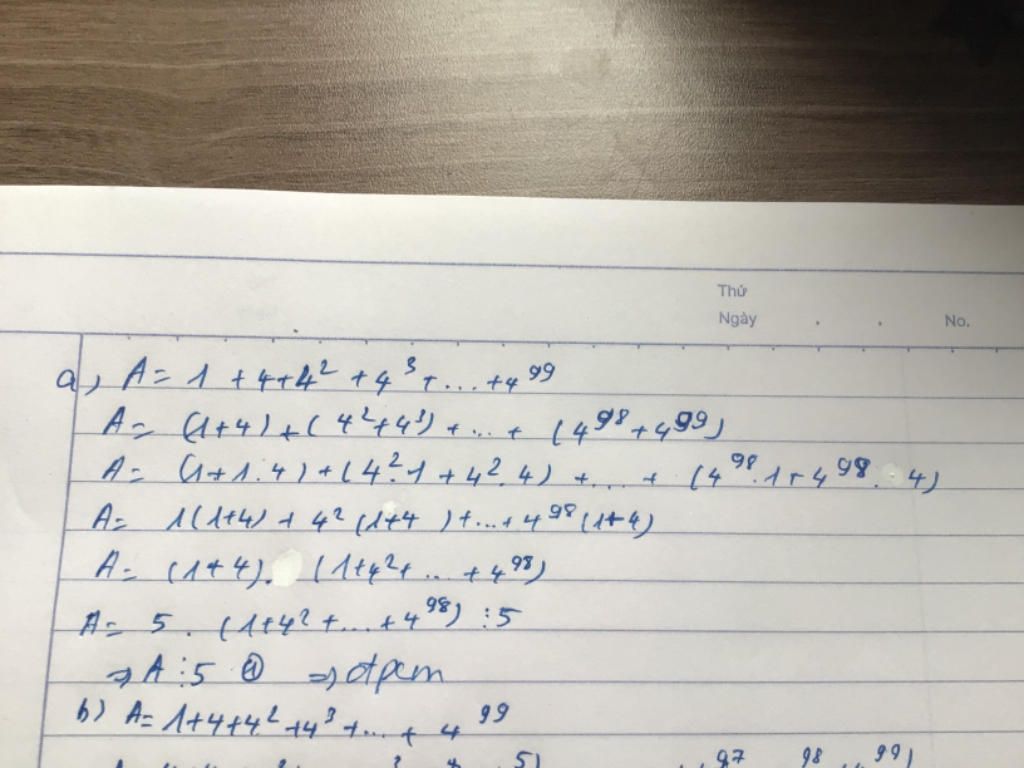 Thứ
Ngày . . No.
a, A= 1 + 4 + 4² + 4³ + ... + 4⁹⁹
A= (1+4) + (4²+4³) + ... + (4⁹⁸+4⁹⁹)
A= (1+1.4) + (4².1 + 4².4) + ... + (4⁹⁸.1 + 4⁹⁸. 4)
A= 1(1+4) + 4² (1+4) + ... + 4⁹⁸(1+4)
A= (1+4). (1+4²+ ... + 4⁹⁸)
A= 5 . (1+4²+...+4⁹⁸) ⋮5
⇒ A⋮5 ① ⇒ đpcm
b) A= 1+4+4²+4³+...+ 4⁹⁹